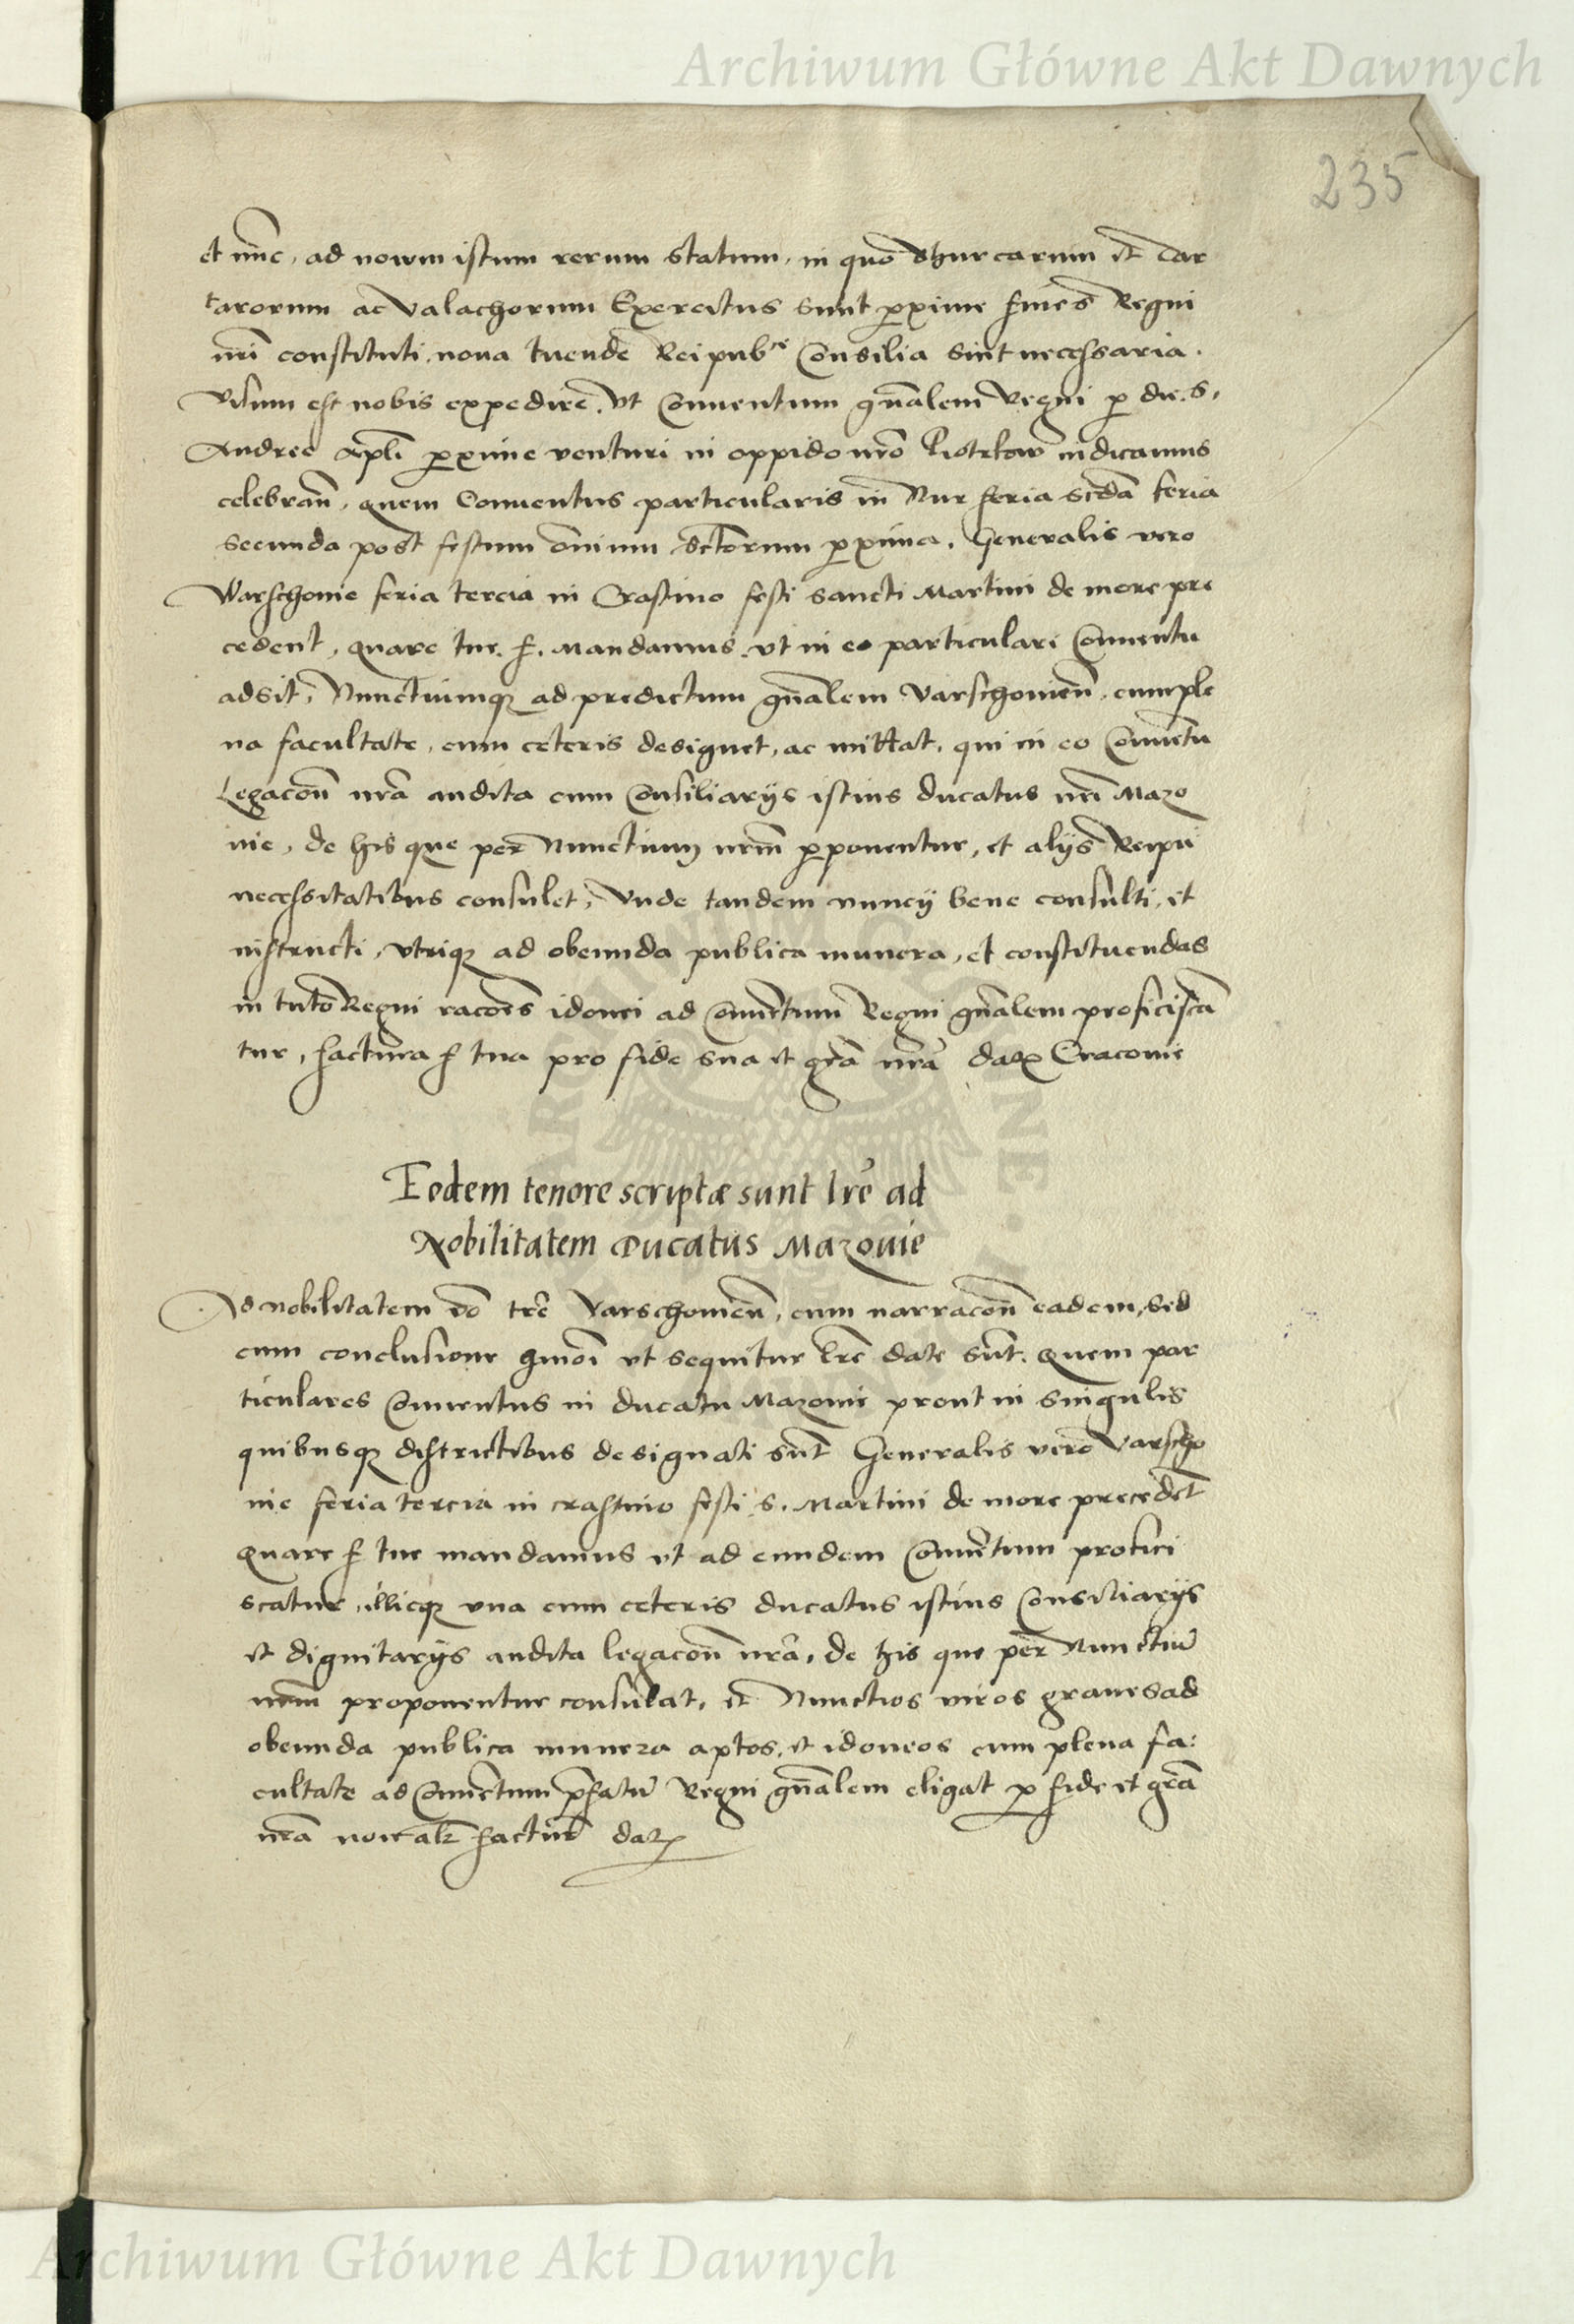 Archiwum Główne Akt Dawnych
235
et nūc, ad nouum istum rerum statum, in quo Thurcarum et Tar
tarorum ac Valachorum Exercitus sunt proxime fines Regni
nr̄i constituti, noua tuende Reipub᷑ce Consilia sint necessaria.
Visum est nobis expedire, vt Conuentum gn̄alem Regni p die. s.
Andree Apl̄i proxime venturi in oppido nr̄o Piotrkow indicamus
celebran̄, quem Conuentus particularis in Nur feria scd̄a feria
secunda post festum om̄ium sctōrum proxima, Generalis vero
Warschouie feria tercia in Crastino festi sancti Martini de more pre
cedent, quare tue. f. Mandamus, vt in eo particulari Conuentu
adsit, Nunctiumq; ad predictum gn̄alem Varschouien̄, cum ple
na facultate, cum ceteris designet, ac mittat, qui in eo Conuētu
Legacōn nr̄a audita cum Consiliarijs istius ducatus nr̄i Mazo
uie, de his que per Nunctium nr̄m proponentur, et alijs Reipu
necessitatibus consulet, Vnde tandem nuncij bene consulti, et
instructi, vtriq; ad obeunda publica munera, et constituendas
in tuto Regni racōes idonei ad Conuētum Regni gn̄alem proficiscā
tur, factura f tua pro fide sua et gr̄a nr̄a Dat Cracouie
Eodem tenore scriptæ sunt lr̄e ad
Nobilitatem Ducatus Mazouie
Ad nobilitatem vō tr̄e Varschouien̄, cum narracōn eadem, sed
cum conclusione hmōi vt sequitur lr̄e date sūt. Quem par
ticulares Conuentus in ducatu Mazouie prout in singulis
quibusq; districtibus designati sūt Generalis vero Varscho
uie feria tercia in crastino festi s. Martini de more precedēt
Quare f tue mandamus vt ad eundem Conuētum profici
scatur, illicq; vna cum ceteris ducatus istius Consiliarijs
et dignitarijs audita legacōn nr̄a, de his que per Nunctiū
nr̄m proponentur consulat, et Nunctios viros graues ad
obeunda publica munera aptos, et idoneos cum plena fa:
cultate ad Conuētum p̄fatū Regni gn̄alem eligat p fide et gr̄a
nr̄a factura Dat
Archiwum Główne Akt Dawnych